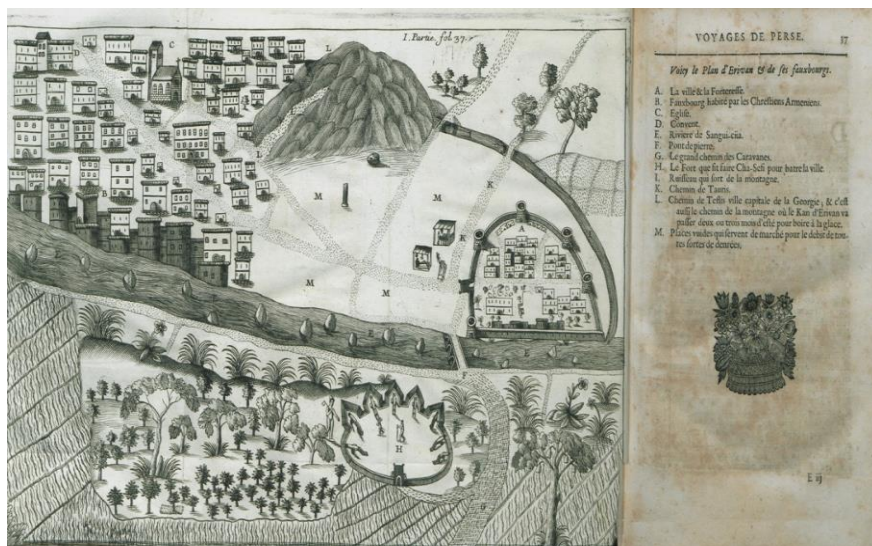 I. Partie. fol 37.
D
C
L
B
L
M
M
K
K
A
M
M
E
E
F
H
G
VOYAGES DE PERSE.
37
Voicy le Plan d'Erivan & de ses fauxbourgs.
A. La ville & la Forteresse.
B. Fauxbourg habité par les Chrestiens Armeniens.
C. Eglise.
D. Convent.
E. Riviere de Sangui-cia.
F. Pont de pierre.
G. Le grand chemin des Caravanes.
H. Le Fort que fit faire Cha-Sefi pour battre la ville
I. Ruisseau qui sort de la montagne.
K. Chemin de Tauris.
L. Chemin de Teflis ville capitale de la Georgie, & c'est
aussi le chemin de la montagne où le Kan d'Erivan va
passer deux ou trois mois d'esté pour boire à la glace.
M. Places vuides qui servent de marché pour le debit de tou-
tes sortes de denrées.
E iij